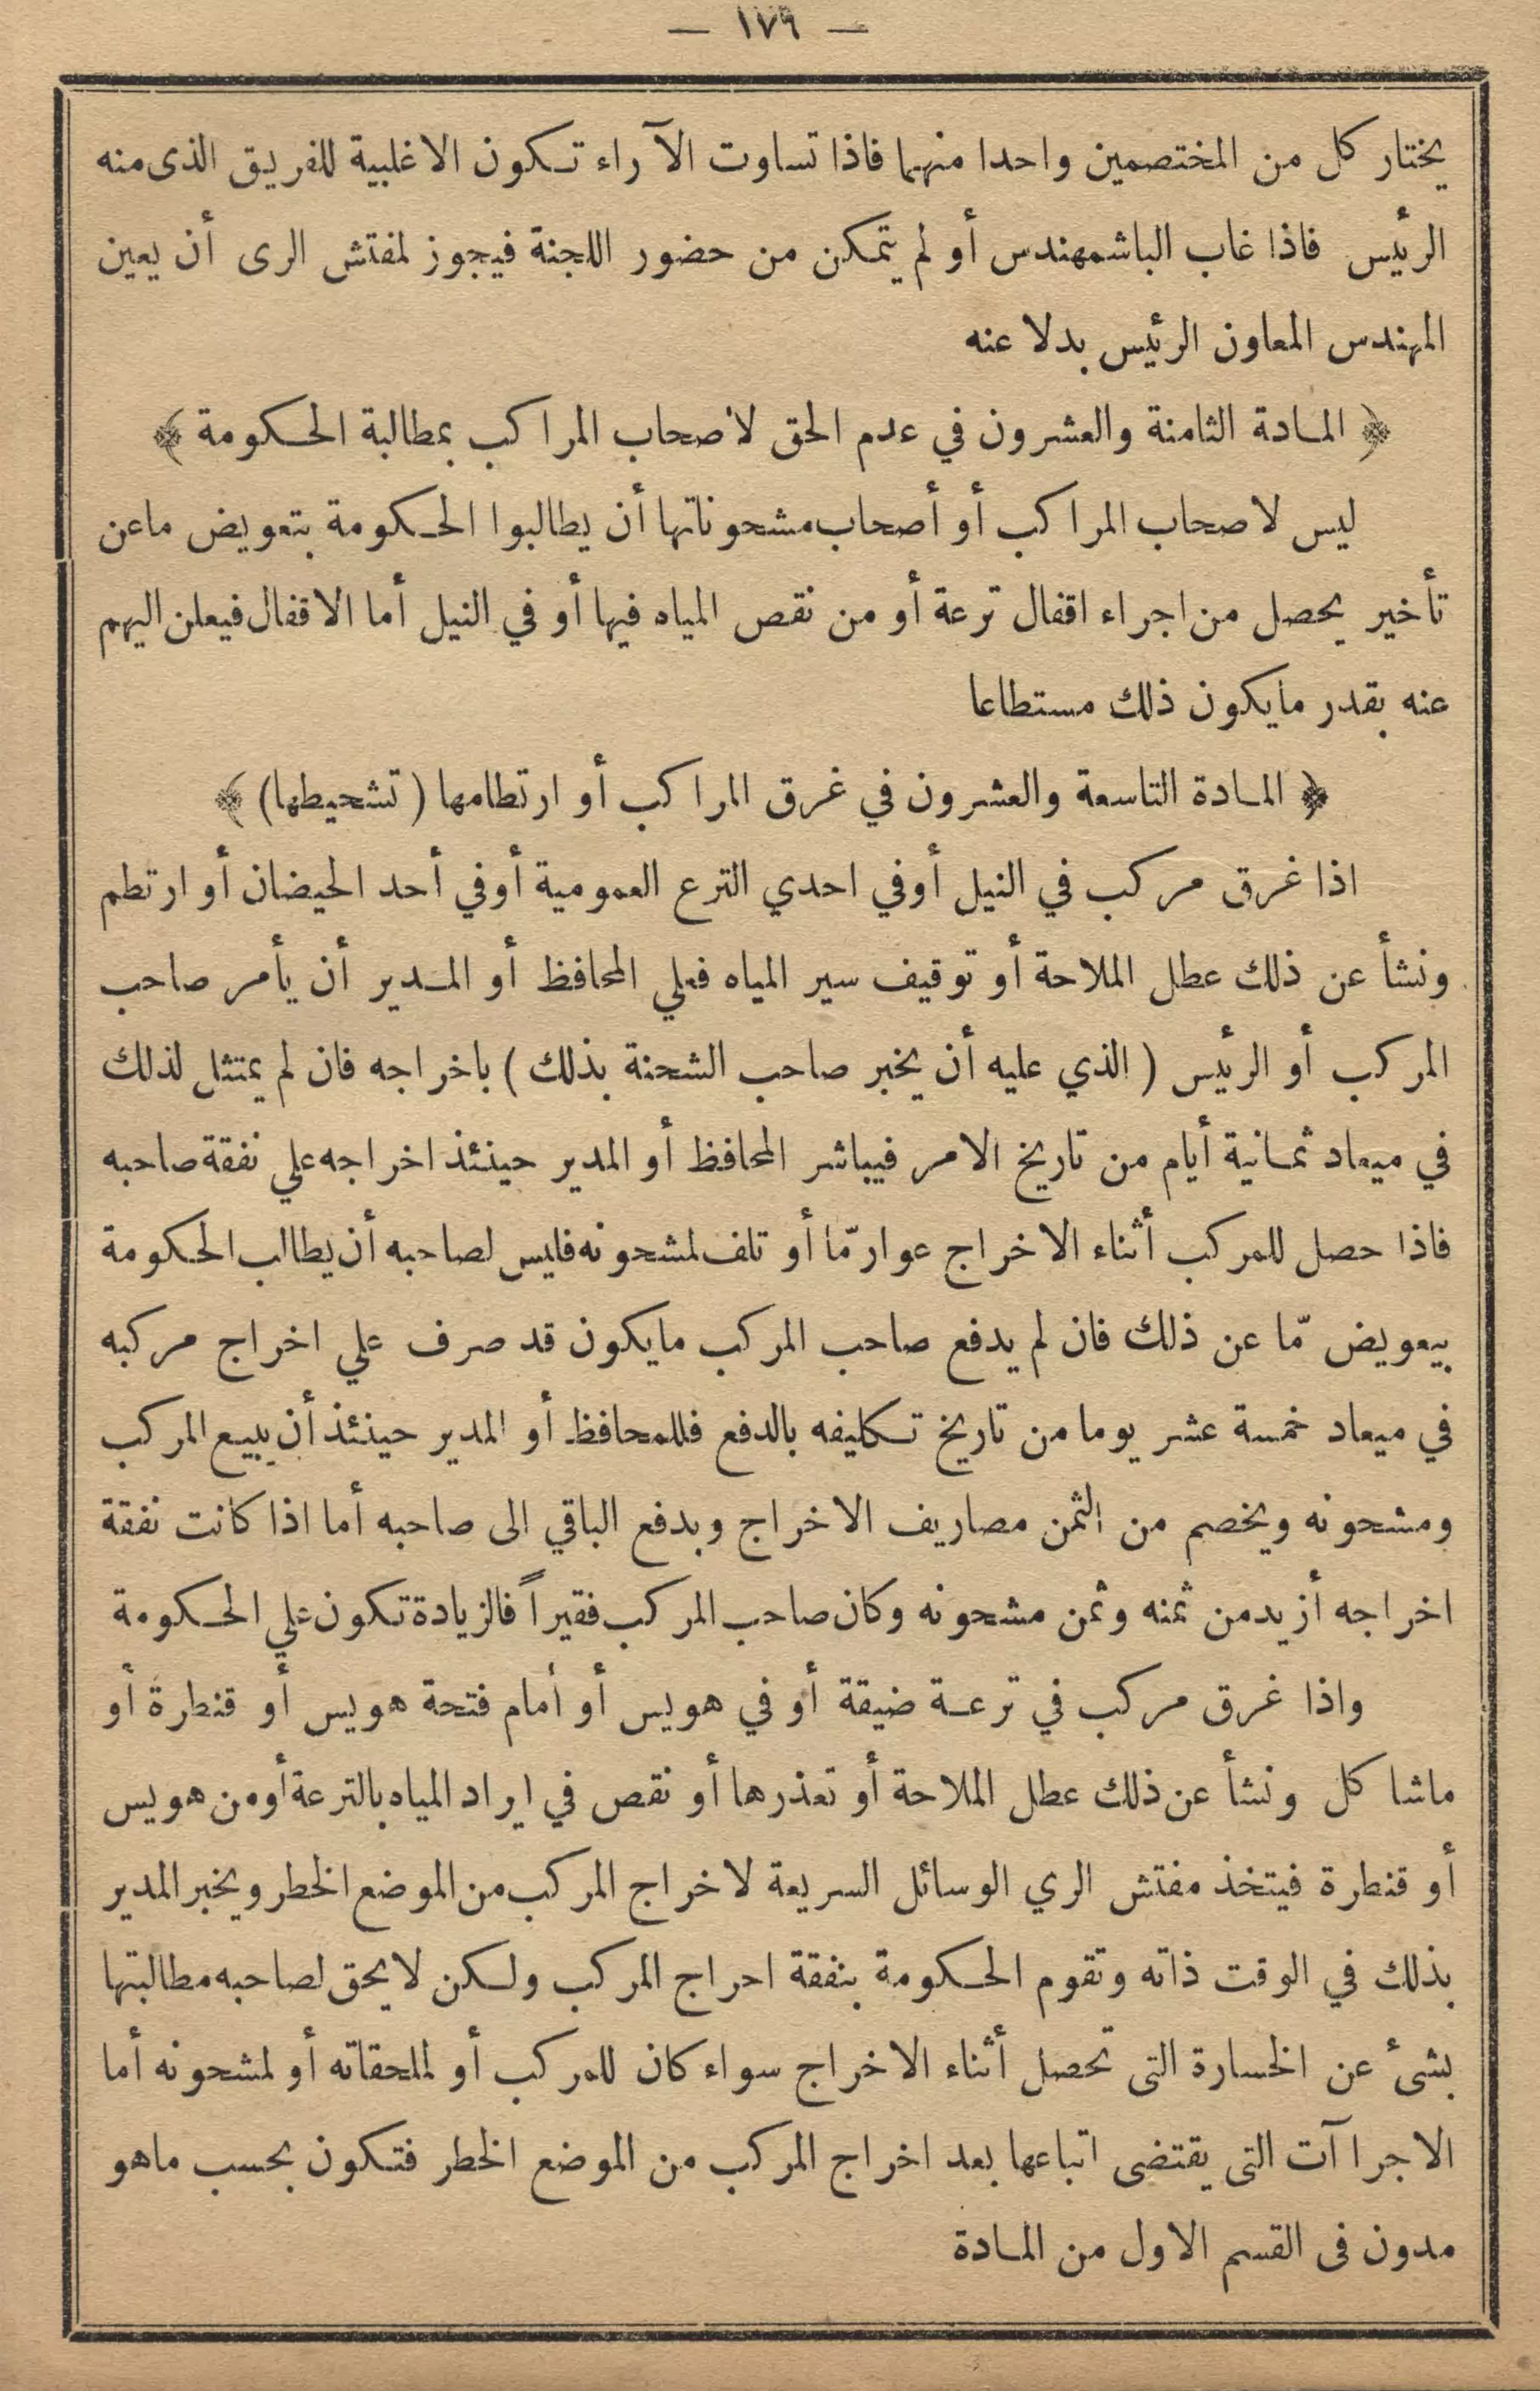 — ١٧٩ —
يختار كل من المختصمين واحدا منهما فاذا تساوت الآراء تكون الاغلبية للفريق الذى منه
الرئيس فاذا غاب الباشمهندس أو لم يتمكن من حضور اللجنة فيجوز لمفتش الرى أن يعين
المهندس المعاون الرئيس بدلا عنه
﴿ المادة الثامنة والعشرون في عدم الحق لاصحاب المراكب بمطالبة الحكومة ﴾
ليس لاصحاب المراكب أو أصحاب مشحوناتها أن يطالبوا الحكومة بتعويض ماعن
تأخير يحصل من اجراء اقفال ترعة أو من نقص المياه فيها أو في النيل أما الاقفال فيعلن اليهم
عنه بقدر مايكون ذلك مستطاعا
﴿ المادة التاسعة والعشرون في غرق المراكب أو ارتطامها (تشحيطها) ﴾
اذا غرق مركب في النيل أوفي احدي الترع العمومية أوفي أحد الحيضان أو ارتطم
ونشأ عن ذلك عطل الملاحة أو توقيف سير المياه فعلي المحافظ أو المدير أن يأمر صاحب
المركب أو الرئيس (الذي عليه أن يخبر صاحب الشحنة بذلك) باخراجه فان لم يمتثل لذلك
في ميعاد ثمانية أيام من تاريخ الامر فيباشر المحافظ أو المدير حينئذ اخراجه علي نفقة صاحبه
فاذا حصل للمركب أثناء الاخراج عوار مّا أو تلف لمشحونه فليس لصاحبه أن يطالب الحكومة
بيعويض مّا عن ذلك فان لم يدفع صاحب المركب مايكون قد صرف علي اخراج مركبه
في ميعاد خمسة عشر يوما من تاريخ تكليفه بالدفع فللمحافظ أو المدير حينئذ أن يبيع المركب
ومشحونه ويخصم من الثمن مصاريف الاخراج ويدفع الباقي الى صاحبه أما اذا كانت نفقة
اخراجه أزيد من ثمنه وثمن مشحونه وكان صاحب المركب فقيراً فالزيادة تكون علي الحكومة
واذا غرق مركب في ترعة ضيقة أو في هويس أو أمام فتحة هويس أو قنطرة أو
ماشاكل ونشأ عن ذلك عطل الملاحة أو تعذرها أو نقص في ايراد المياه بالترعة أو من هويس
أو قنطرة فيتخذ مفتش الري الوسائل السريعة لاخراج المركب من الموضع الخطر ويخبر المدير
بذلك في الوقت ذاته وتقوم الحكومة بنفقة احراج المركب ولكن لا يحق لصاحبه مطالبتها
بشئ عن الخسارة التى تحصل أثناء الاخراج سواء كان للمركب أو لملحقاته أو لمشحونه أما
الاجراآت التى يقتضى اتباعها بعد اخراج المركب من الموضع الخطر فتكون بحسب ماهو
مدون فى القسم الاول من المادة